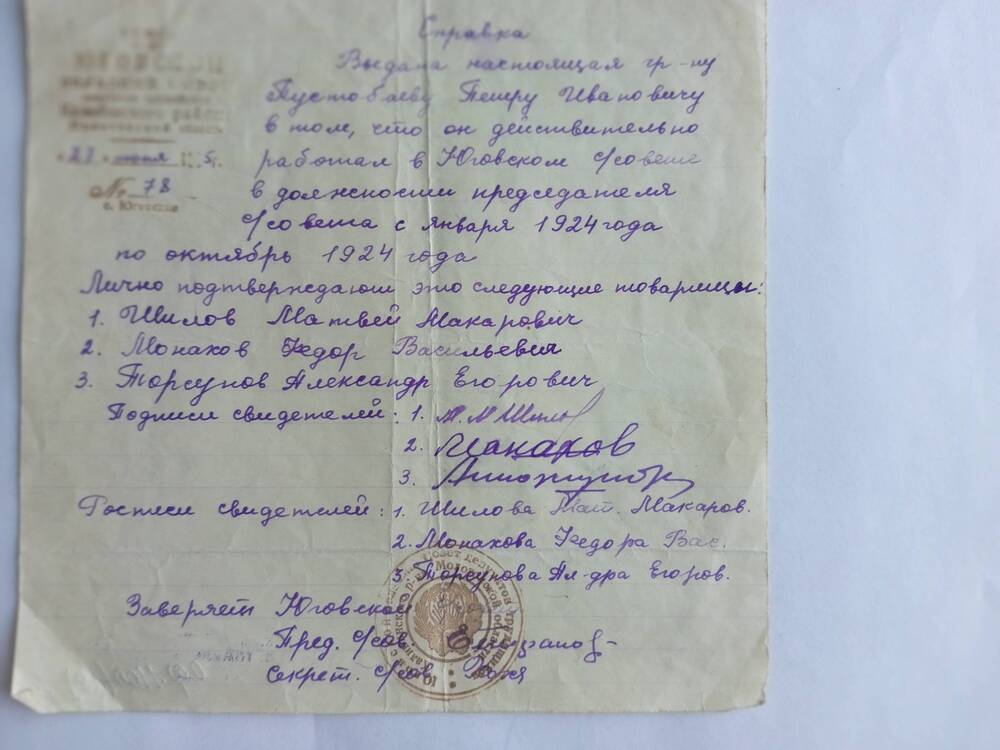 Справка
ЮГОВСКОЙ
Выдана настоящая гр-ну
Пустобаеву Петру Ивановичу
в том, что он действительно
работал в Юговском с/совете
№ 78
в должности председателя
с/совета с января 1924 года
по октябрь 1924 года
Лично подтверждают это следующие товарищи:
1. Шилов Матвей Макарович
2. Монахов Федор Васильевич
3. Торсунов Александр Егорович
Подписи свидетелей: 1. М. М Шилов
2. Манахов
3.
Росписи свидетелей: 1. Шилова Мат. Макаров.
2. Монахова Федора Вас.
3. Торсунова Ал-дра Егоров.
Заверяет Юговской
Пред. с/сов.
Секрет. с/сов.
Совет депутатов трудящихся
Молотовской области